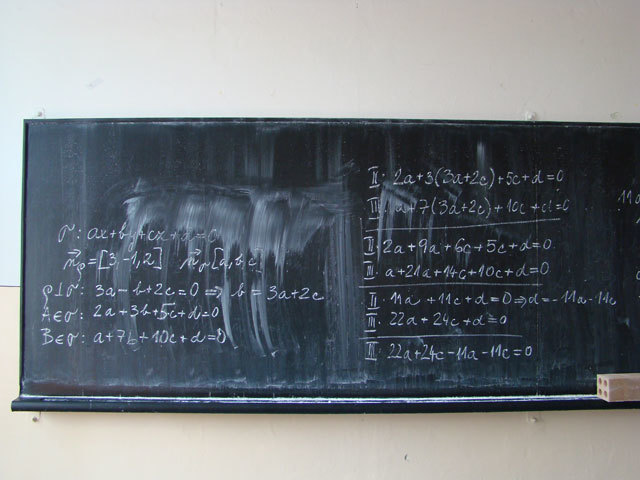 σ: ax+by+cz+d=0
n⃗ρ=[3,-1,2] n⃗σ[a,b,c]
ρ⊥σ: 3a-b+2c=0 ⇒ b=3a+2c
A∈σ: 2a+3b+5c+d=0
B∈σ: a+7b+10c+d=0
II: 2a+3(3a+2c)+5c+d=0
III: a+7(3a+2c)+10c+d=0
II: 2a+9a+6c+5c+d=0
III: a+21a+14c+10c+d=0
II: 11a+11c+d=0⇒d=-11a-11c
III: 22a+24c+d=0
III: 22a+24c-11a-11c=0